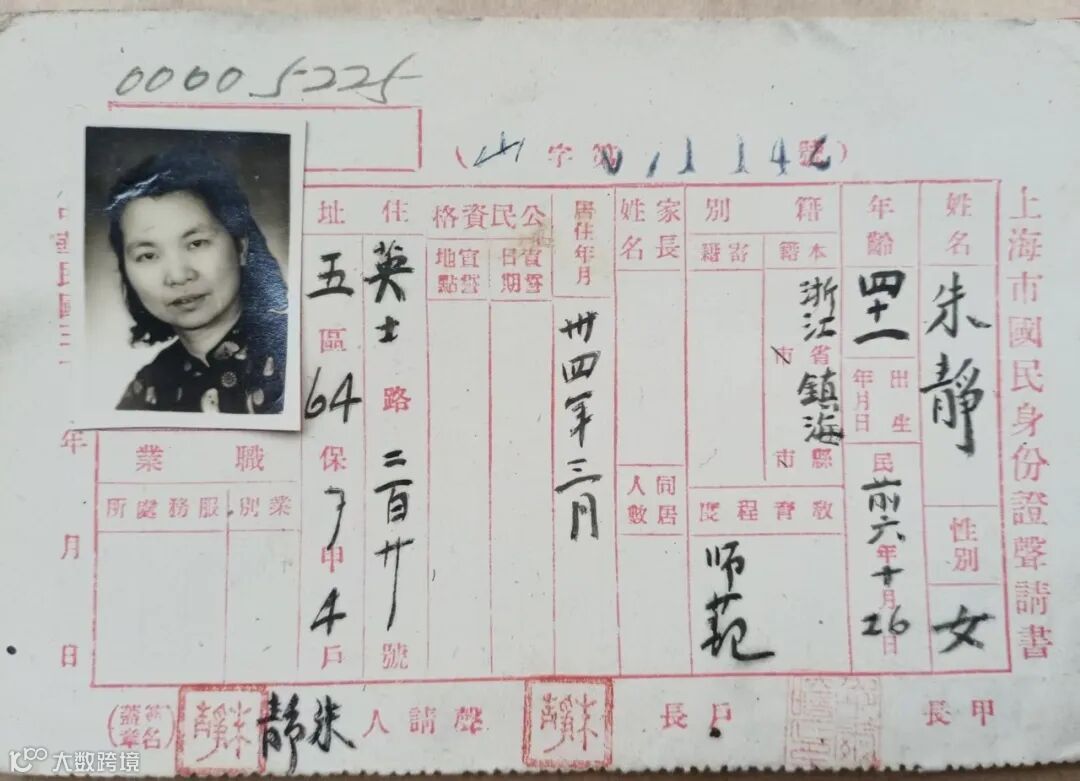 00005225
（山字第01142號）
上海市國民身份證聲請書
姓名 朱靜
性別 女
年齡 四十一
出生年月日 民前六年十月26日
籍別
本籍 浙江省市鎮海縣市
寄籍
教育程度 师范
家長姓名
同居人數
居住年月 卅四年三月
公民資格
宣誓日期
宣誓地點
住址 英士路二百廿號
五區64保7甲4戶
職業
業別
服務處所
中華民國三十 年 月 日
甲長
戶長
朱靜
聲請人 朱靜
（簽名蓋章）
朱靜
大数跨境